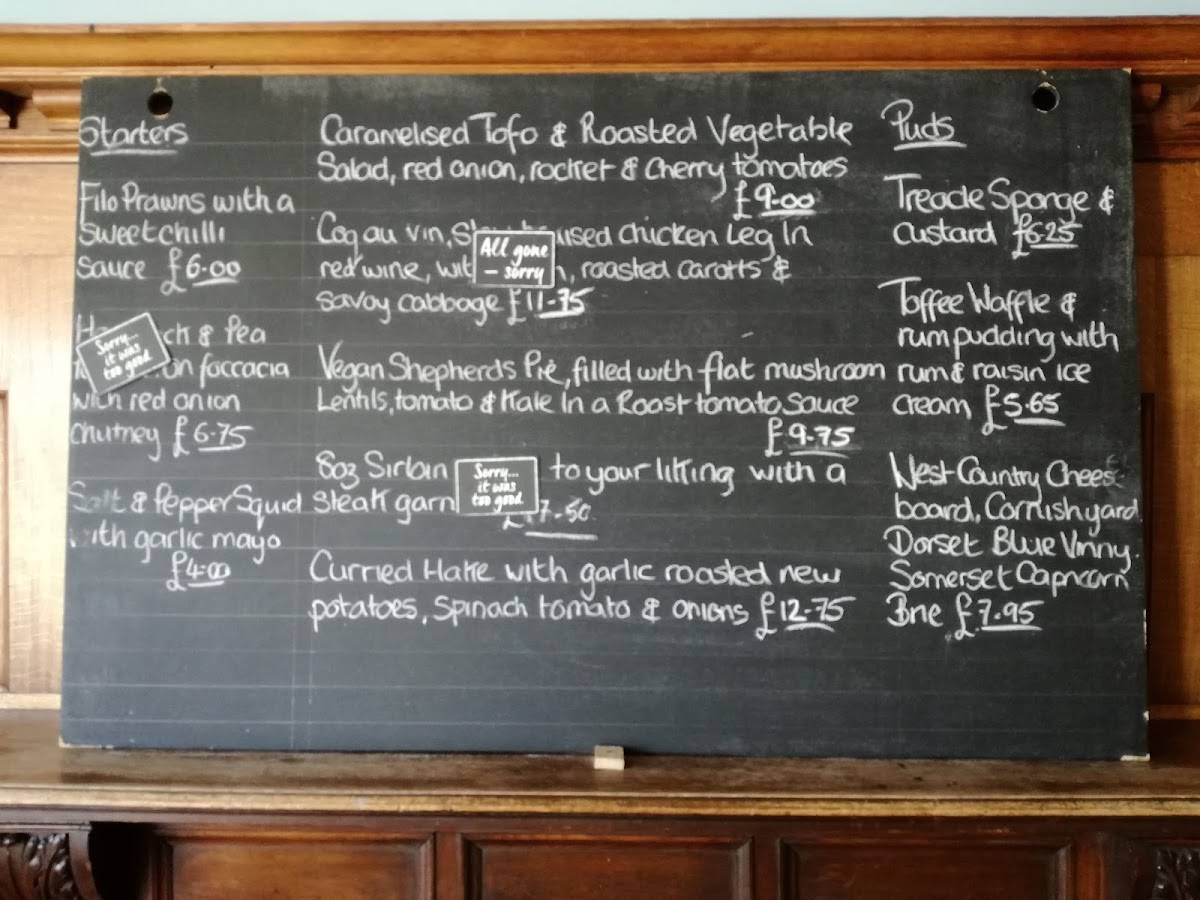 Starters
Filo Prawns with a
Sweet chilli
sauce £6.00
ck & Pea
on foccacia
with red onion
chutney £6.75
Sorry...
it was
too good
Salt & Pepper Squid
with garlic mayo
£4.00
Caramelised Tofo & Roasted Vegetable
Salad, red onion, rocket & Cherry tomatoes
£9.00
Coq au vin, used chicken Leg In
red wine, , roasted carotts &
Savoy cabbage £11-75
All gone
- sorry
Vegan Shepherds Pie, filled with flat mushroom
Lentils, tomato & Kale In a Roast tomato sauce
£9.75
8oz Sirloin to your liking with a
Steak garn
£17-50
Sorry...
it was
too good
Curried Hake with garlic roasted new
potatoes, Spinach tomato & onions £12-75
Puds
Treacle Sponge &
custard £6.25
Toffee Waffle &
rum pudding with
rum & raisin ice
cream £5.65
West Country Chees
board, Cornish yard
Dorset Blue Vinny.
Somerset Capricorn
Brie £7.95